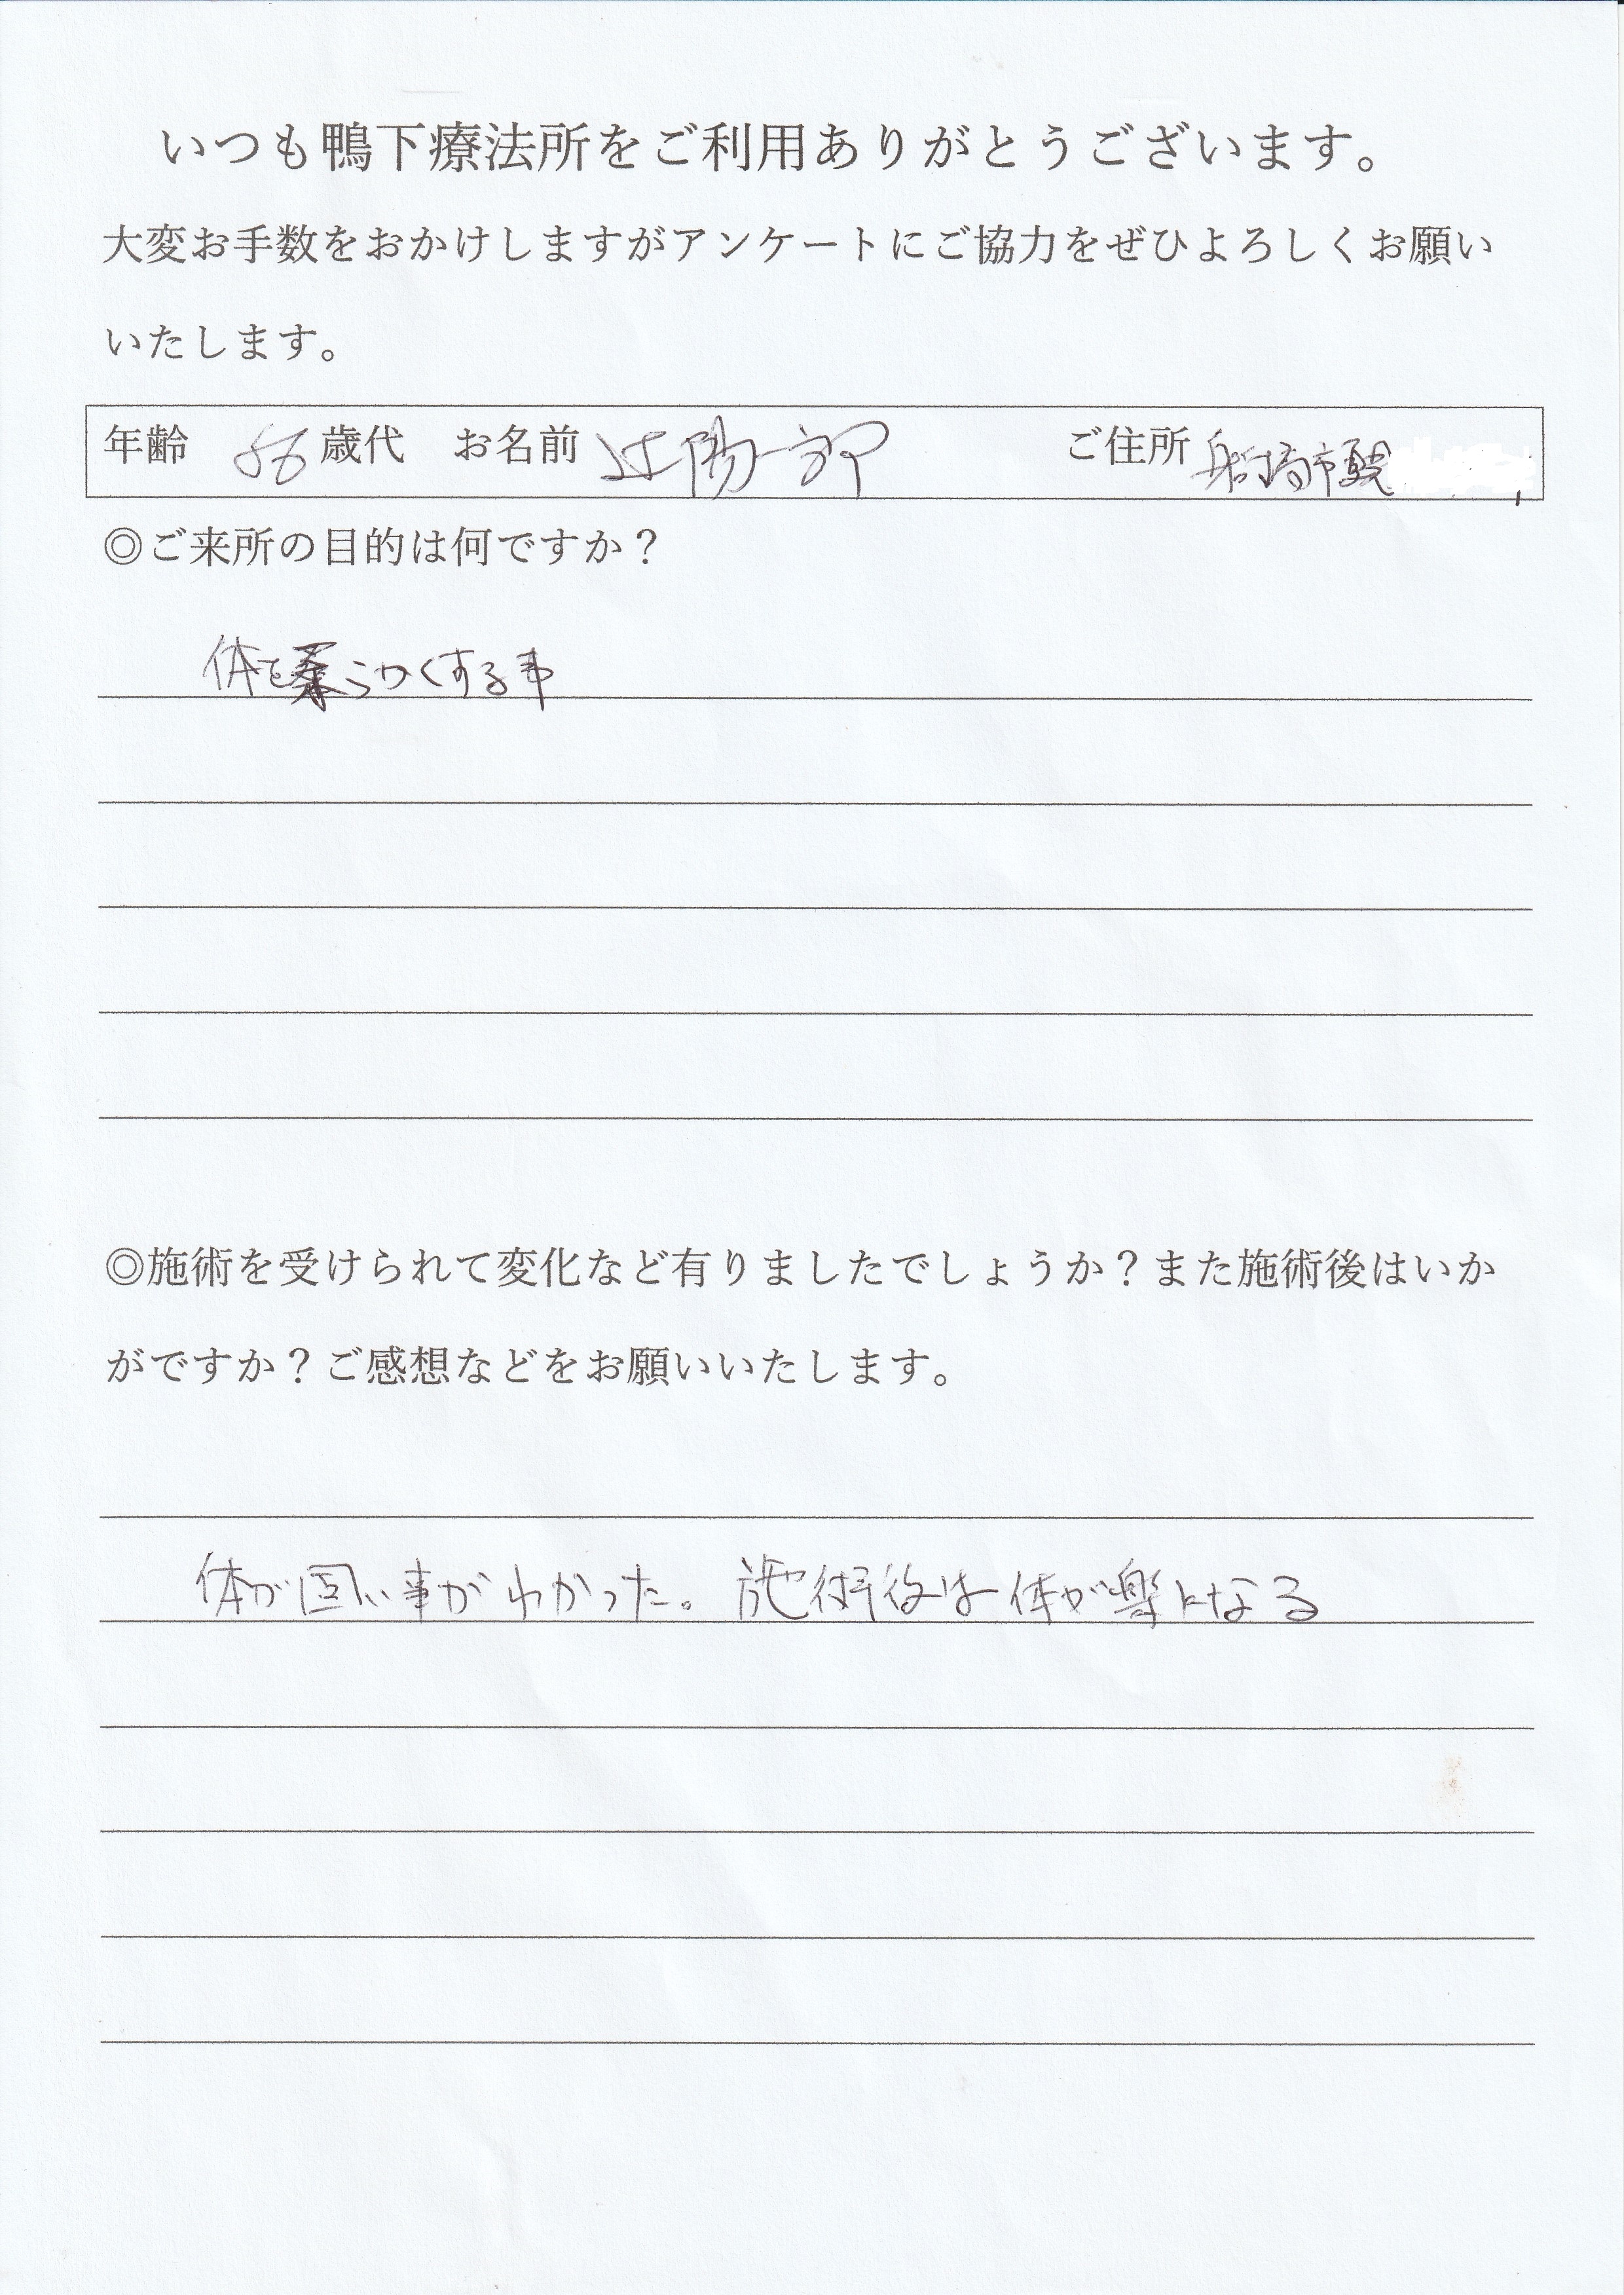 いつも鴨下療法所をご利用ありがとうございます。
大変お手数をおかけしますがアンケートにご協力をぜひよろしくお願い
いたします。
年齢 歳代 お名前 辻陽一郎 ご住所 船橋市
◎ご来所の目的は何ですか？
体を柔らかくする事
◎施術を受けられて変化など有りましたでしょうか？また施術後はいか
がですか？ご感想などをお願いいたします。
体が固い事がわかった。施術後は体が楽になる